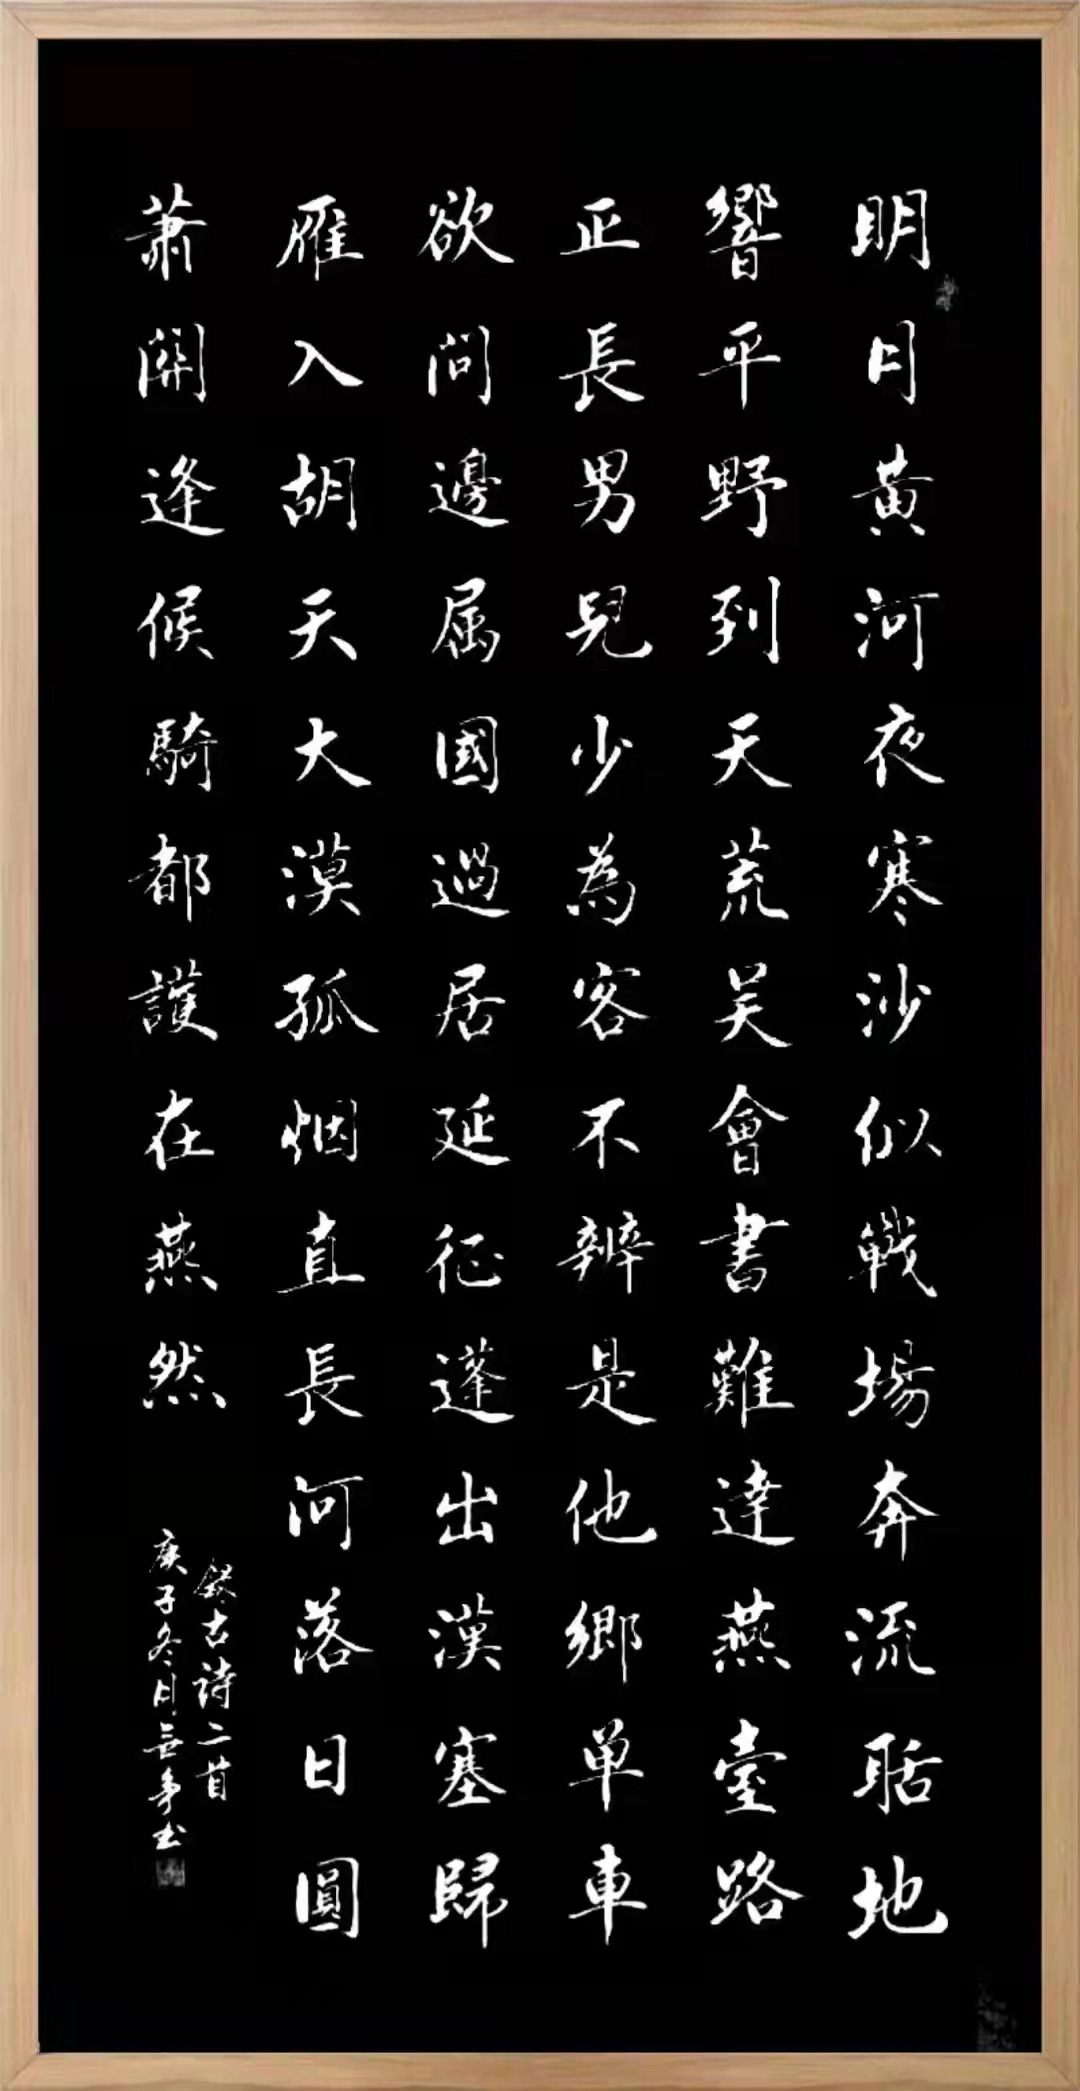 明月黃河夜寒沙似戰場奔流聒地
響平野到天荒吴會書難達燕臺路
正長男兒少為客不辨是他鄉单車
欲問邊属國過居延征蓬出漢塞歸
雁入胡天大漠孤烟直長河落日圓
蕭關逢候騎都護在燕然
錄古詩二首
庚子冬月無争书